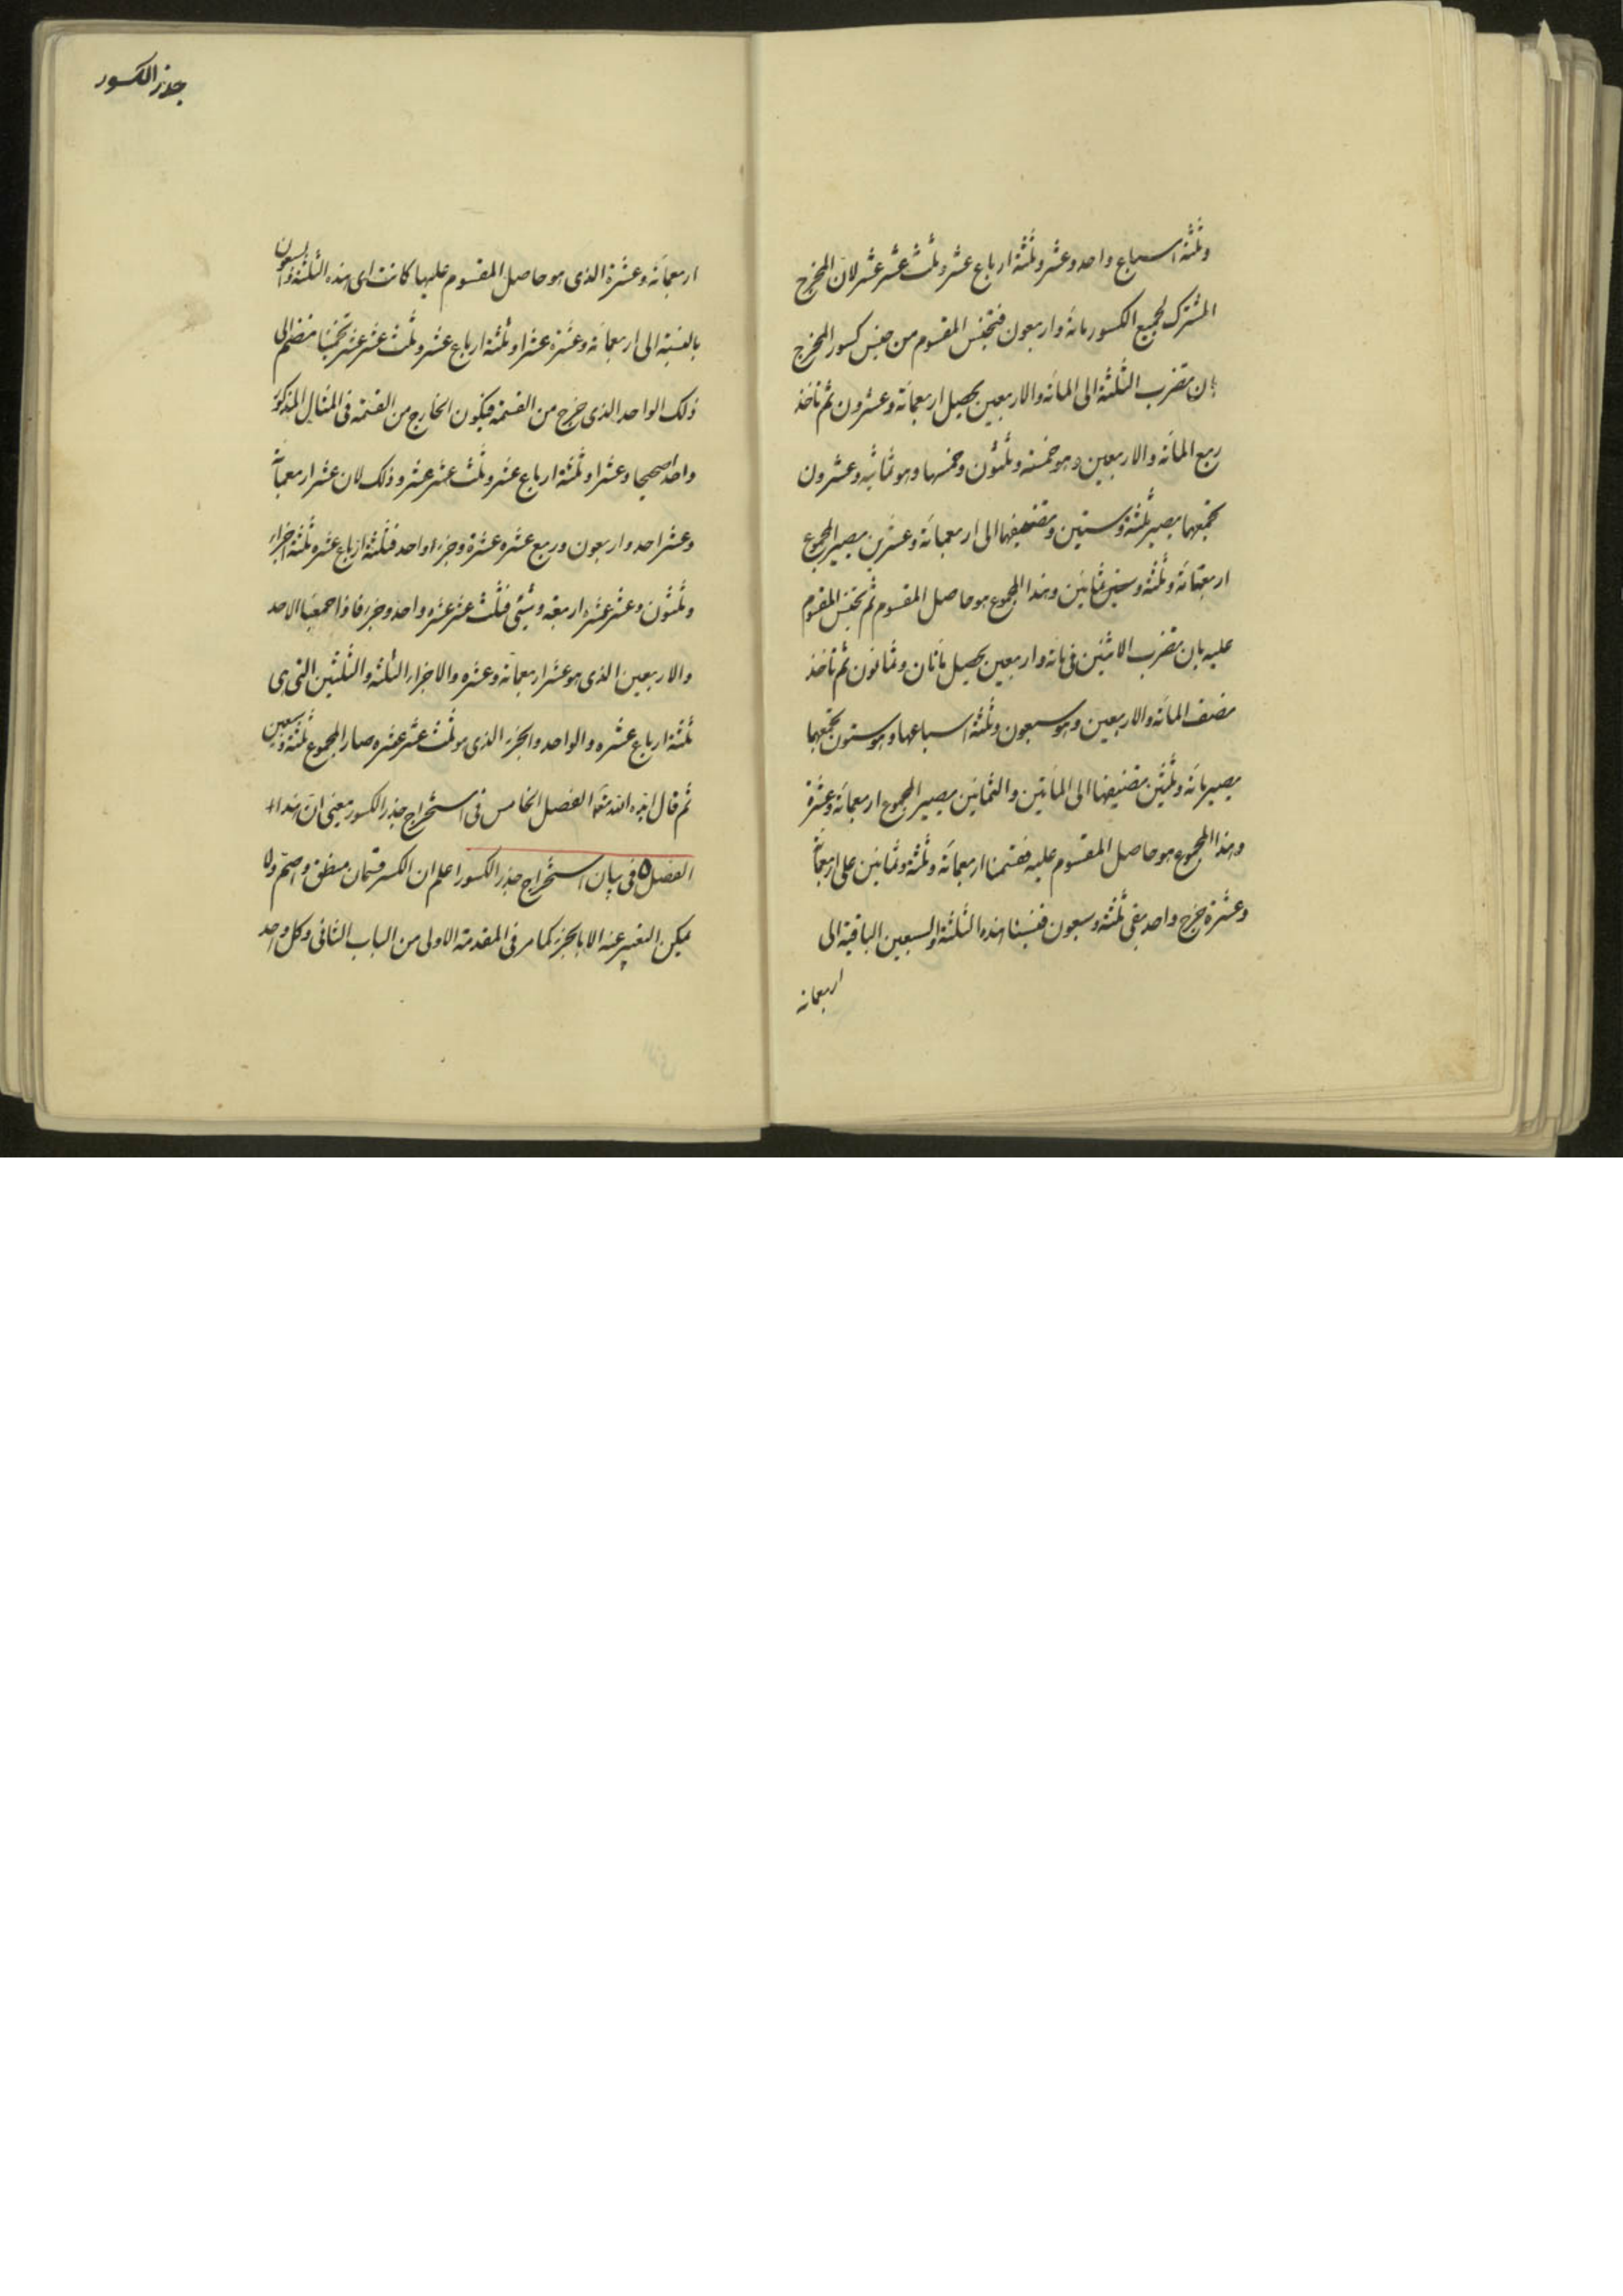 وثلثة اسباع واحد وعشر وثلثة ارباع عشر وثلث عشر عشر لان المخرج
المشترك لجميع الكسور مائة واربعون فتجنس المقسوم من جنس كسور المخرج
بان تضرب الثلثة الى المائة والاربعين يحصل اربعمائة وعشرون ثم تأخذ
ربع المائة والاربعين وهو خمسة وثلثون وخمسها وهو ثمانية وعشرون
تجمعها يصير ثلثة وستين وتضيفها الى اربعمائة وعشرين يصير المجموع
اربعمائة وثلثة وثمانين وهذا المجموع هو حاصل المقسوم ثم تجنس المقسوم
عليه بان تضرب الاثنين في مائة واربعين يحصل مائتان وثمانون ثم تأخذ
نصف المائة والاربعين وهو سبعون وثلثة اسباعها وهو ستون تجمعها
يصير مائة وثلثين تضيفها الى المأتين والثمانين يصير المجموع اربعمائة وعشرة
وهذا المجموع هو حاصل المقسوم عليه فقسمنا اربعمائة وثلثة وثمانين على اربعمائة
وعشرة خرج واحد بقى ثلثة وسبعون فنسبنا هذه الثلثة والسبعين الباقية الى
اربعمائة
جذر الكسور
اربعمائة وعشرة الذى هو حاصل المقسوم عليها كانت اى هذه الثلثة والسبعون
بالنسبة الى اربعمائة وعشرة عشرا وثلثة ارباع عشر وثلث عشر عشر تخمينا منضم الى
ذلك الواحد الذى خرج من القسمة فيكون الخارج من القسمة فى المثال المذكور
واحدا صحيحا وعشرا وثلثة ارباع عشر وثلث عشر عشر وذلك لان عشر اربعمائة
وعشر احد واربعون وربع عشره عشرة وجزء واحد فثلثة ارباع عشره ثلثة اجزاء
وثلثون وعشر عشره اربعة وشئ فثلث عشر عشره واحد وجزء فاذا جمعنا الاحد
والاربعين الذى هو عشر اربعمائة وعشره والاجزاء الثلثة والثلثين التى هى
ثلثة ارباع عشره والواحد والجزء الذى هو ثلث عشر عشره صار المجموع ثلثة وسبعين
ثم قال ايده الله الفصل الخامس فى استخراج جذر الكسور يعنى ان هذا
الفصل ٥ فى بيان استخراج جذر الكسور اعلم ان الكسر قسمان منطق واصم ولا
يمكن التعبير عنه الا بالجزء كما مر فى المقدمة الاولى من الباب الثانى وكل واحد